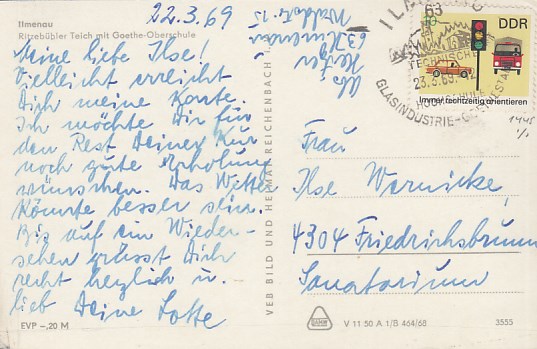 Ilmenau
Ritzebühler Teich mit Goethe-Oberschule
22.3.69
Meine liebe Ilse!
Vielleicht erreicht
Dich meine Karte.
Ich möchte Dir für
den Rest Deiner Kur
noch gute Erholung
wünschen. Das Wetter
könnte besser sein.
Bis auf ein Wieder-
sehen grüsst Dich
recht herzlich u.
lieb Deine Lotte
EVP -,20 M
VEB BILD UND HEIMAT REICHENBACH i.
Abs.
63 Ilmenau
Waldstr. 15
63
TECHNISCHE
23.3.69
HOCHSCHULE
GLASINDUSTRIE-
DDR
Immer rechtzeitig orientieren
1445
Frau
Ilse Warnicke
4304 Friedrichsbrunn
Sanatorium
V 11 50 A 1/B 464/68
3555